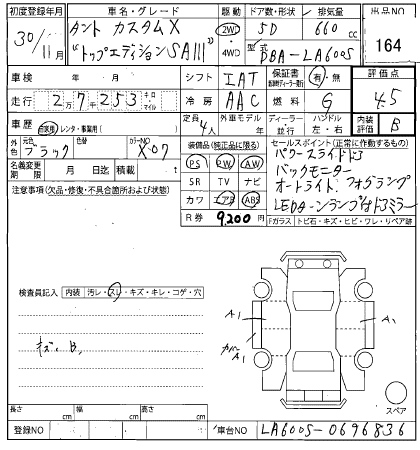 初度登録年月 車名・グレード 駆動 ドア数・形状 排気量 出品NO
30/11月 タント カスタムX 2WD・4WD 5D 660cc 164
"トップエディションSAIII" 型式 DBA-LA600S
車検 年 月 シフト IAT 保証書 有・無 評価点
走行 2万7千253 キロ マイル 冷房 AAC 燃料 G 4.5
車歴 自家用 レンタ・事業用( ) 定員 4人 外車モデル 年 ディーラー・並行 ハンドル 左・右 内装評価 B
外色 元色 ブラック カラーNO X-07 装備品(純正品に限る) セールスポイント(正常に作動するもの)
名義変更期限 月 日迄 積載 t PS PW AW パワースライドドア
注意事項(欠品・修復・不具合箇所および状態) SR TV ナビ バックモニター
カワ エアB ABS オートライト フォグランプ
R券 9,200円 LEDヘッドランプ
Fガラス トビ石・キズ・ヒビ・ワレ・リペア跡
検査員記入 内装 汚レ・スレ・キズ・キレ・コゲ・穴
A1 A1
カバー A1
キズ、B,
スペア
長さ cm 幅 cm 高さ cm
登録NO 車台NO LA600S-0696836